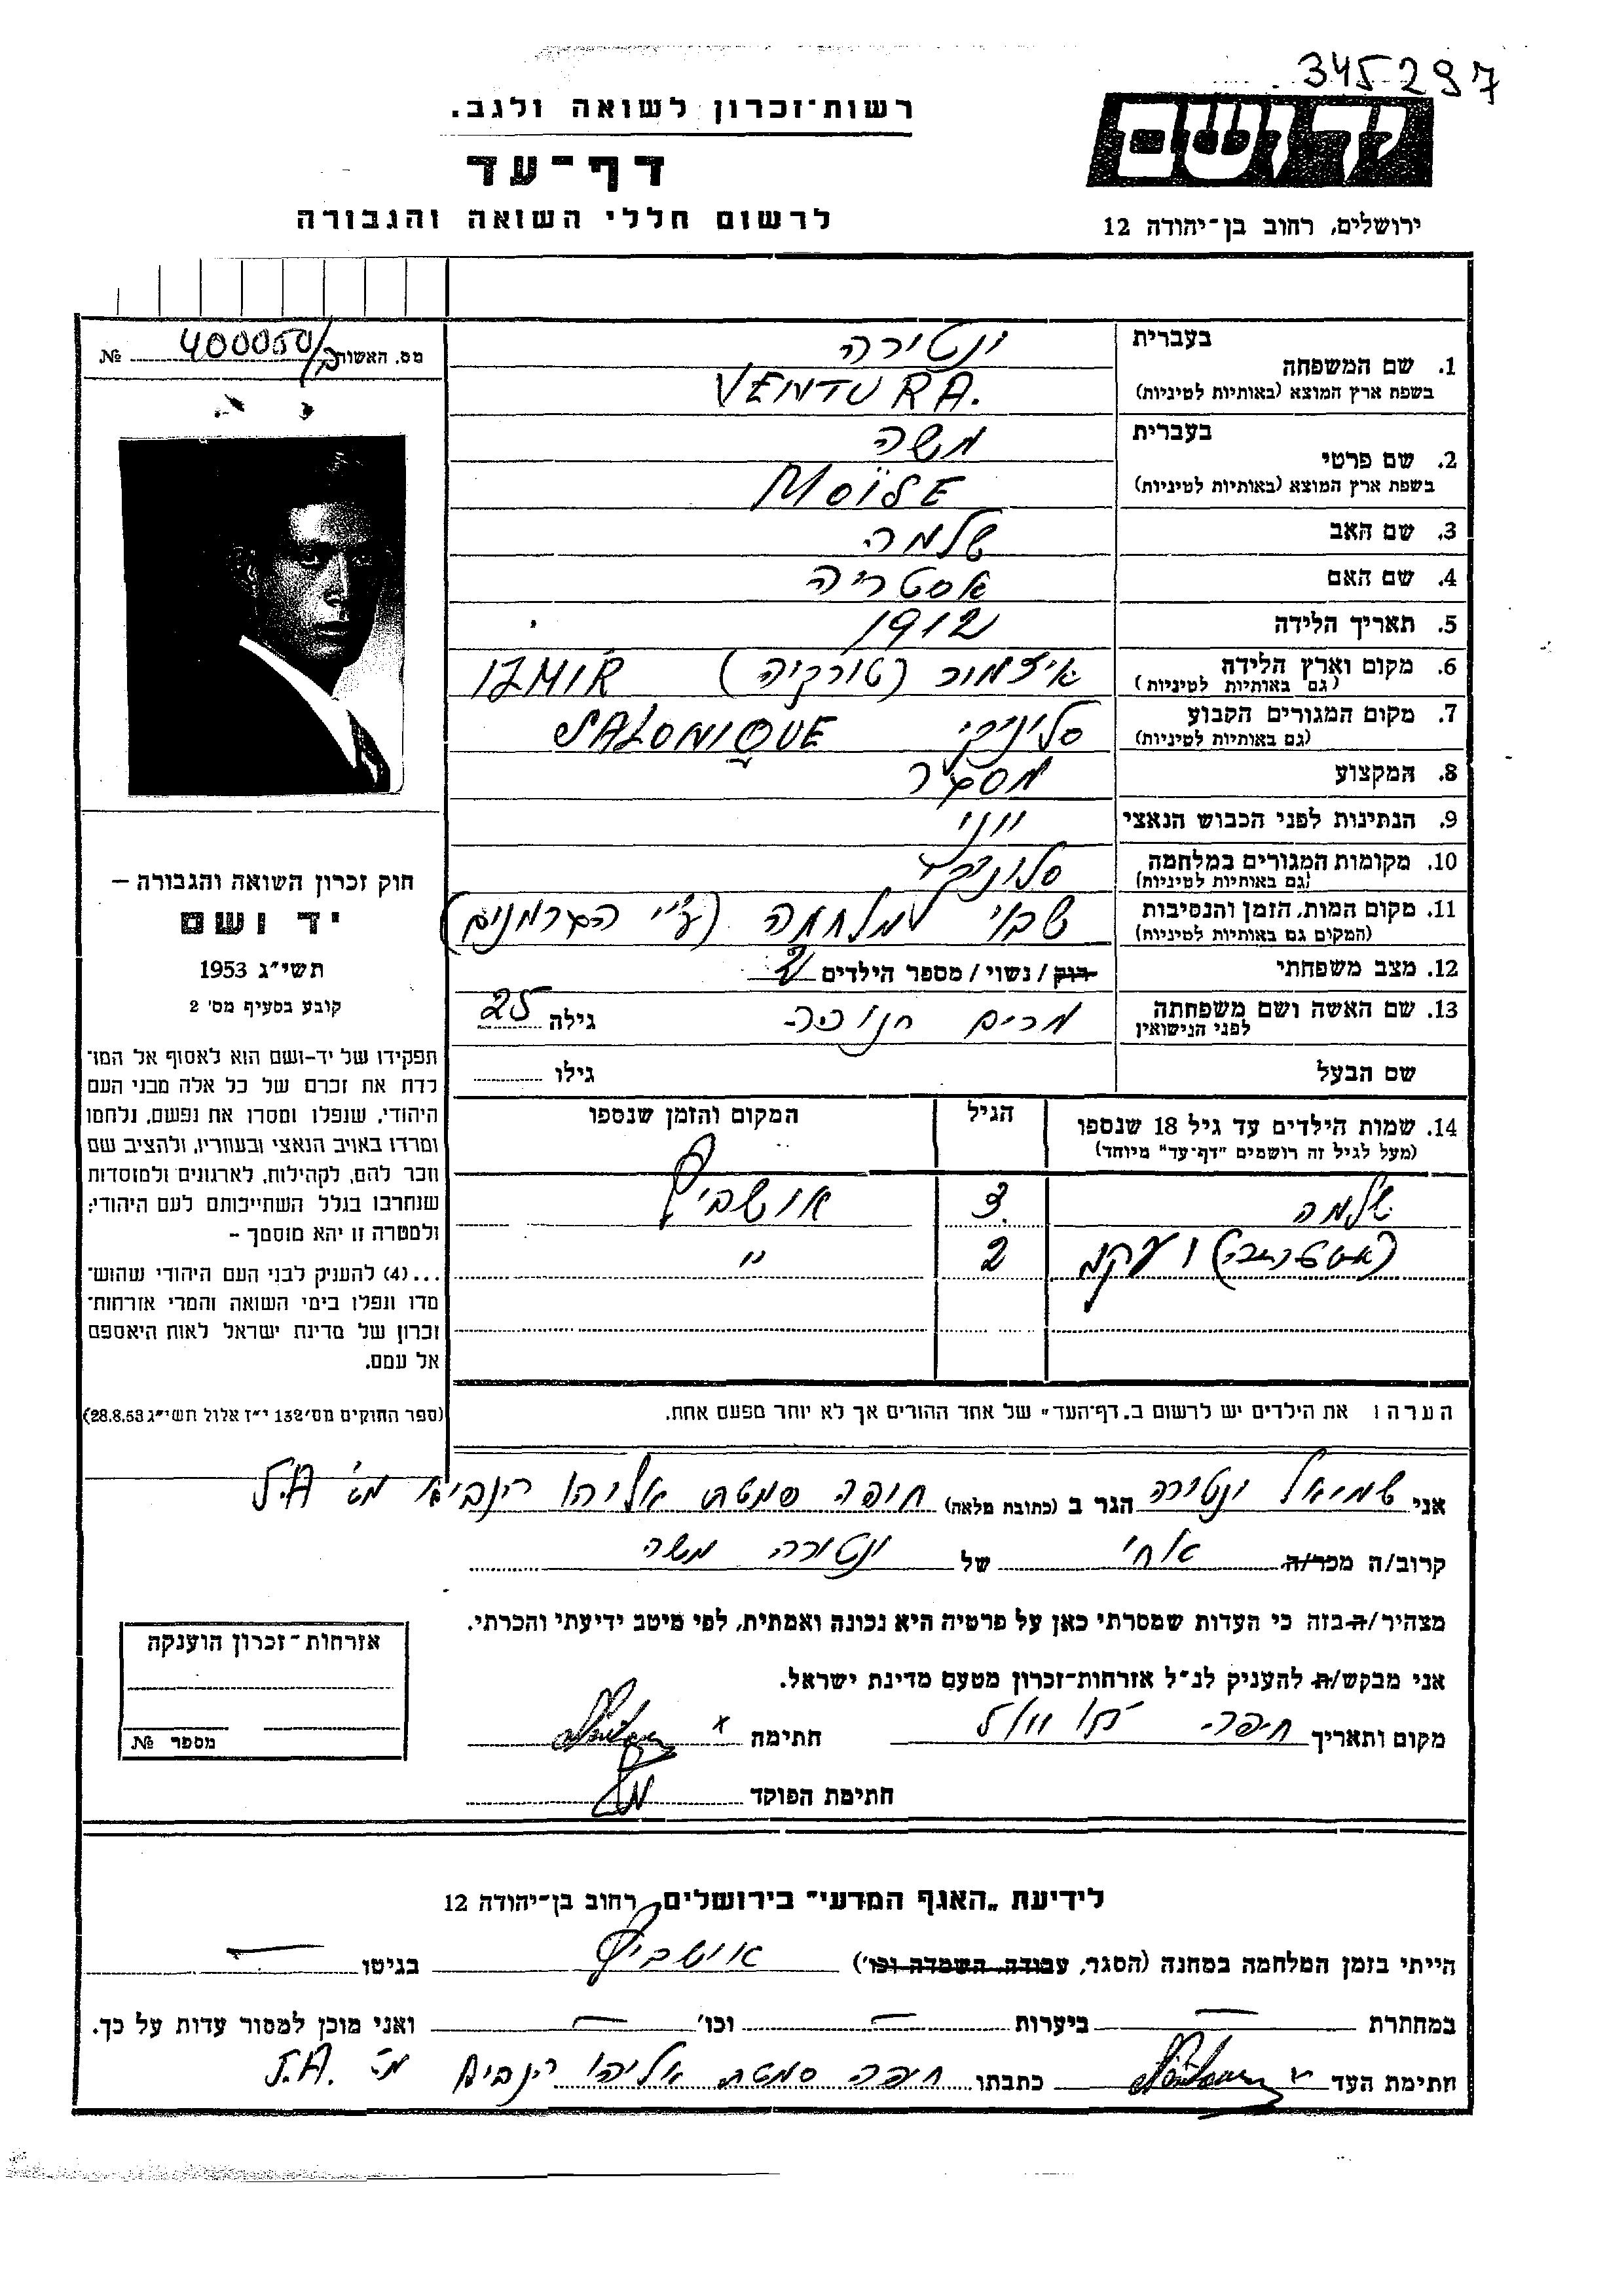 345297
רשות־זכרון לשואה ולגב.
יד ושם
דף־עד
לרשום חללי השואה והגבורה
ירושלים, רחוב בן־יהודה 12
מס. האשור 400050/ №
בעברית ונטורה
1. שם המשפחה
בשפת ארץ המוצא (באותיות לטיניות) VENTURA.
בעברית משה
2. שם פרטי
בשפת ארץ המוצא (באותיות לטיניות) MOÏSE
3. שם האב שלמה
4. שם האם אסטריה
5. תאריך הלידה 1912
6. מקום וארץ הלידה איזמור (טורקיה) IZMIR
(גם באותיות לטיניות)
7. מקום המגורים הקבוע סלוניקי SALONIQUE
(גם באותיות לטיניות)
8. המקצוע מסגר
9. הנתינות לפני הכבוש הנאצי יווני
10. מקומות המגורים במלחמה סלוניקי
(גם באותיות לטיניות)
11. מקום המות, הזמן והנסיבות שבוי מלחמה (ע״י הגרמנים)
(המקום גם באותיות לטיניות)
12. מצב משפחתי רווק / נשוי / מספר הילדים 2
13. שם האשה ושם משפחתה לפני הנישואין מרים חנוכה גילה 25
שם הבעל גילו
14. שמות הילדים עד גיל 18 שנספו הגיל המקום והזמן שנספו
(מעל לגיל זה רושמים "דף־עד" מיוחד)
שלמה 3 אושביץ
2 ״
הערה ו את הילדים יש לרשום ב„דף־העד" של אחד ההורים אך לא יותר מפעם אחת.
חוק זכרון השואה והגבורה –
יד ושם
תשי״ג 1953
קובע בסעיף מס' 2
תפקידו של יד-ושם הוא לאסוף אל המו־
לדת את זכרם של כל אלה מבני העם
היהודי, שנפלו ומסרו את נפשם, נלחמו
ומרדו באויב הנאצי ובעוזריו, ולהציב שם
וזכר להם, לקהילות, לארגונים ולמוסדות
שנחרבו בגלל השתייכותם לעם היהודי;
ולמטרה זו יהא מוסמך –
...(4) להעניק לבני העם היהודי שהוש־
מדו ונפלו בימי השואה והמרי אזרחות־
זכרון של מדינת ישראל לאות היאספם
אל עמם.
(ספר החוקים מס' 132 י״ז אלול תשי״ג 28.8.53)
אני שמואל ונטורה הגר ב (כתובת מלאה) חיפה סמטת אליהו הנביא מס׳ 5.A
קרוב/ה מכר/ה אחי של ונטורה משה
מצהיר/ה בזה כי העדות שמסרתי כאן על פרטיה היא נכונה ואמתית, לפי מיטב ידיעתי והכרתי.
אני מבקש/ת להעניק לנ״ל אזרחות־זכרון מטעם מדינת ישראל.
מקום ותאריך חיפה חתימה
חתימת הפוקד
אזרחות־זכרון הוענקה
מספר №
לידיעת „האגף המדעי" בירושלים, רחוב בן־יהודה 12
הייתי בזמן המלחמה במחנה (הסגר, עבודה, השמדה וכו') אושביץ בגיטו —
במחתרת — ביערות — וכו' — ואני מוכן למסור עדות על כך.
חתימת העד כתבתו חיפה סמטת אליהו הנביא מס׳ 5.A.